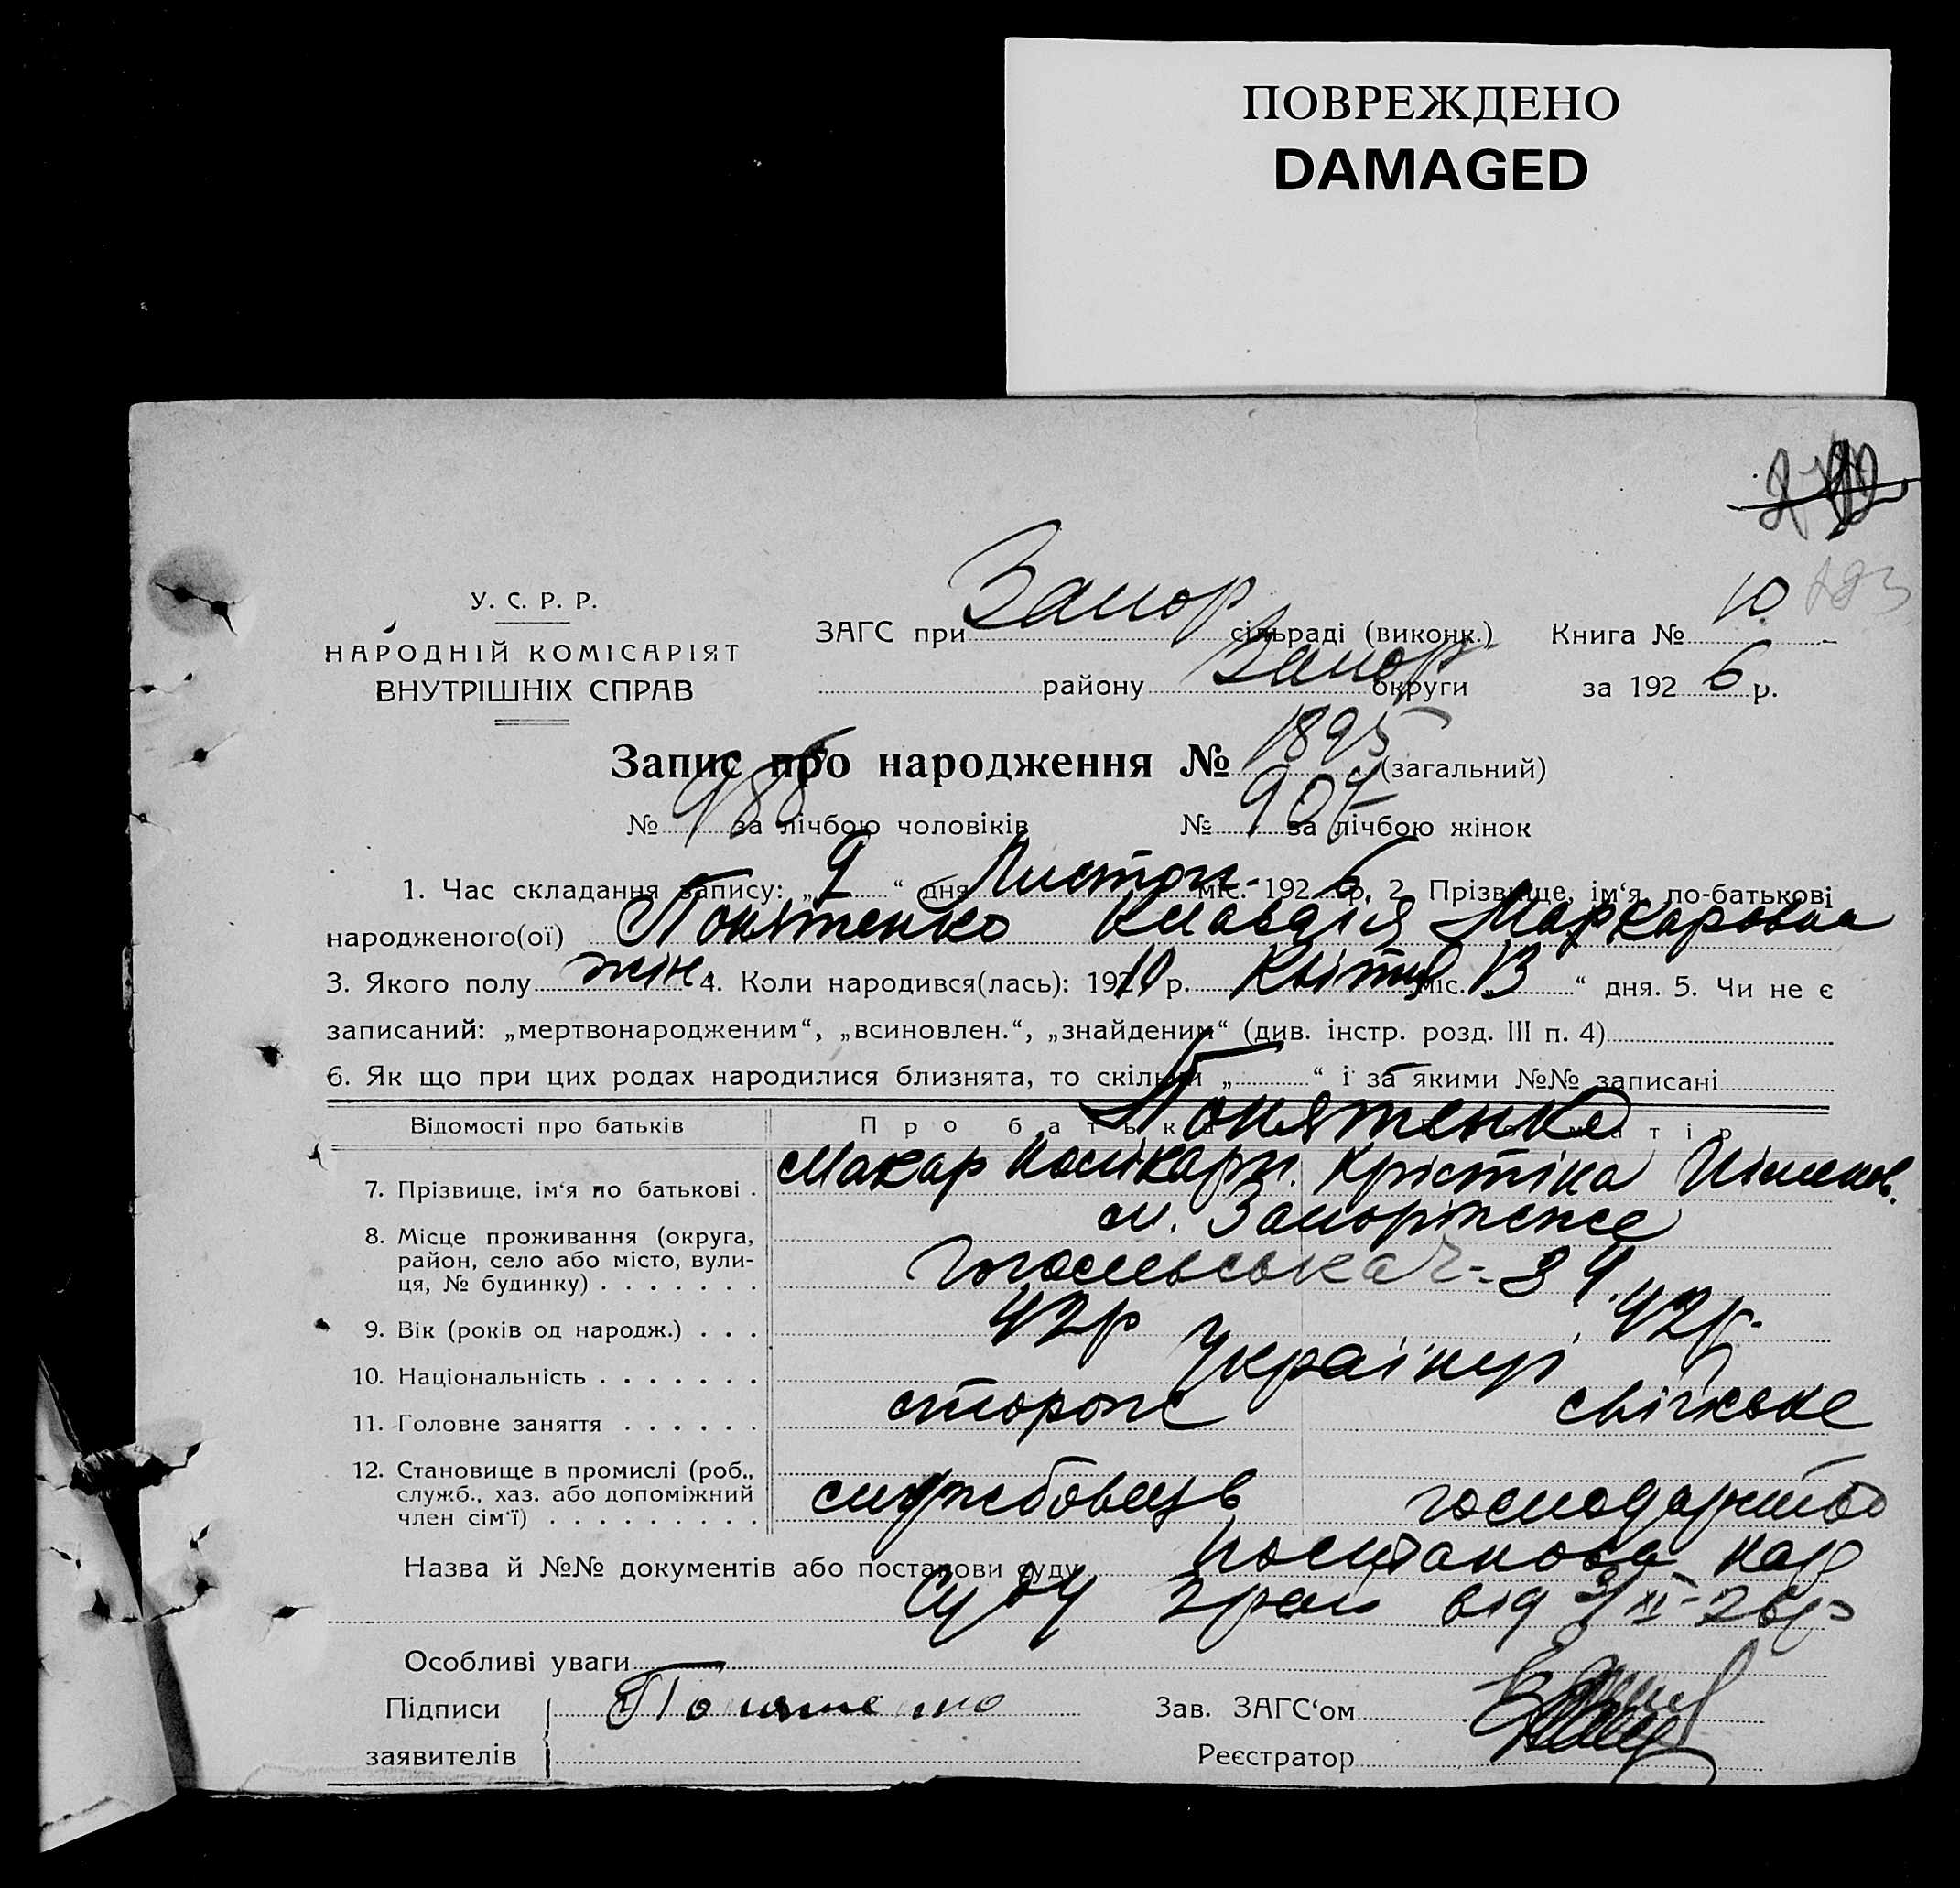 ПОВРЕЖДЕНО
DAMAGED
10
У. С. Р. Р.
НАРОДНІЙ КОМІСАРІЯТ
ВНУТРІШНІХ СПРАВ
ЗАГС при Запор сільраді (виконк.) Книга №
району Запор округи за 1926 р.
Запис про народження № 1895 (загальний)
№ 988 за лічбою чоловіків № 907 за лічбою жінок
1. Час складання запису: „9“ дня Листоп- міс. 1926 р. 2. Прізвище, ім‘я, по-батькові
народженого(ої) Понятенко Клавдія Маркаровна
3. Якого полу жін. 4. Коли народився(лась): 1910 р. Квітня міс. „13“ дня. 5. Чи не є
записаний: „мертвонародженим“, „всиновлен.“, „знайденим“ (див. інстр. розд. III п. 4)
6. Як що при цих родах народилися близнята, то скільки „ “ і за якими №№ записані
Відомості про батьків Про батька матір
Понятенко
7. Прізвище, ім‘я по батькові . Макар Полікарп. Крістіна
8. Місце проживання (округа, м. Запоріжже
район, село або місто, вули-
ця, № будинку) . . . . . . . 39.
9. Вік (років од народж.) . . . 42р 42р.
10. Національність . . . . . . . Українці
11. Головне заняття . . . . . . сторож свійське
12. Становище в промислі (роб.,
служб., хаз. або допоміжний службовець господарство
член сім‘ї) . . . . . . . . .
Назва й №№ документів або постанови суду Постанова нар
суду від 3/XI-26р
Особливі уваги
Підписи Понятенко Зав. ЗАГС‘ом
заявителів Реєстратор